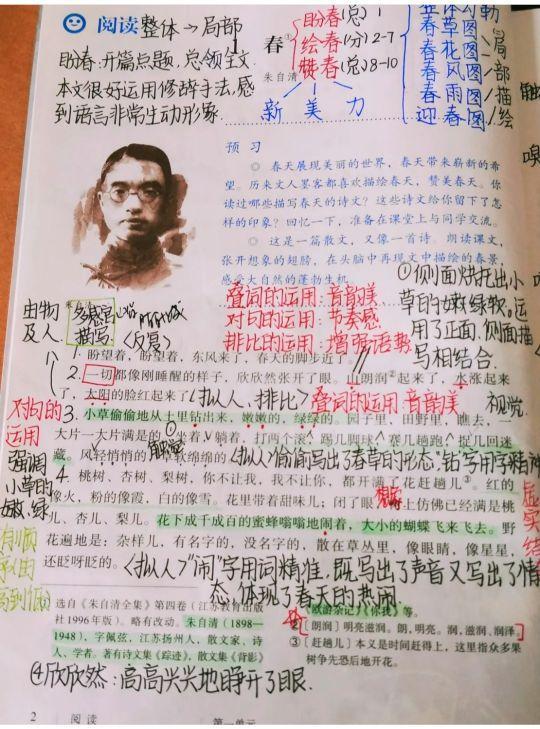 阅读 整体→局部
盼春:开篇点题,总领全文.
本文很好运用修辞手法,感
到语言非常生动形象.
1
春①
朱自清
盼春(总) 1
绘春(分) 2-7
赞春(总) 8-10
新 美 力
春草图
春花图
春风图
春雨图
迎春图
局
部
描
绘
预 习
◎ 春天展现美丽的世界,春天带来崭新的希
望。历来文人墨客都喜欢描绘春天,赞美春天。你
读过哪些描写春天的诗文?这些诗文给你留下了怎
样的印象?回忆一下,准备在课堂上与同学交流。
◎ 这是一篇散文,又像一首诗。朗读课文,
张开想象的翅膀,在头脑中再现文中描绘的春景,
感受大自然的蓬勃生机。
①侧面烘托出小
草的嫩绿软。运
用了正面、侧面描
写相结合.
叠词的运用:音韵美
对句的运用:节奏感
排比的运用:增强语势
由物
及人
描写
(反复)
1. 盼望着,盼望着,东风来了,春天的脚步近了
2. 一切都像刚睡醒的样子,欣欣然张开了眼。山朗润②起来了,水涨起来
了,太阳的脸红起来了
(拟人、排比)
叠词的运用:音韵美
对句的
运用
强调
小草的
嫩,绿
3. 小草偷偷地从土里钻出来,嫩嫩的,绿绿的。园子里,田野里,瞧去,一
视觉.
大片一大片满是的。坐着,躺着,打两个滚,踢几脚球,赛几趟跑,捉几回迷
藏。风轻悄悄的,草软绵绵的
触觉
(拟人)“偷偷”写出了春草的形态,“钻”字用字精准
4. 桃树、杏树、梨树,你不让我,我不让你,都开满了花赶趟儿③。红的
像火,粉的像霞,白的像雪。花里带着甜味儿;闭了眼,树上仿佛已经满是桃
儿、杏儿、梨儿。花下成千成百的蜜蜂嗡嗡地闹着,大小的蝴蝶飞来飞去。野
花遍地是:杂样儿,有名字的,没名字的,散在草丛里,像眼睛,像星星,
还眨呀眨的。
(拟人)“闹”字用词精准,既写出了声音又写出了情
态,体现了春天的热闹.
虚实结
高到低
选自《朱自清全集》第四卷(江苏教育出版
社1996年版)。略有改动。朱自清(1898—
1948),字佩弦,江苏扬州人,散文家、诗
人、学者。著有诗文集《踪迹》,散文集《背影》
《欧游杂记》《你我》等。
②〔朗润〕明亮滋润。朗,明亮。润,滋润、润泽。
③〔赶趟儿〕本义是时间赶得上,这里指众多果
树争先恐后地开花。
④欣欣然:高高兴兴地睁开了眼.
2 阅读 第一单元